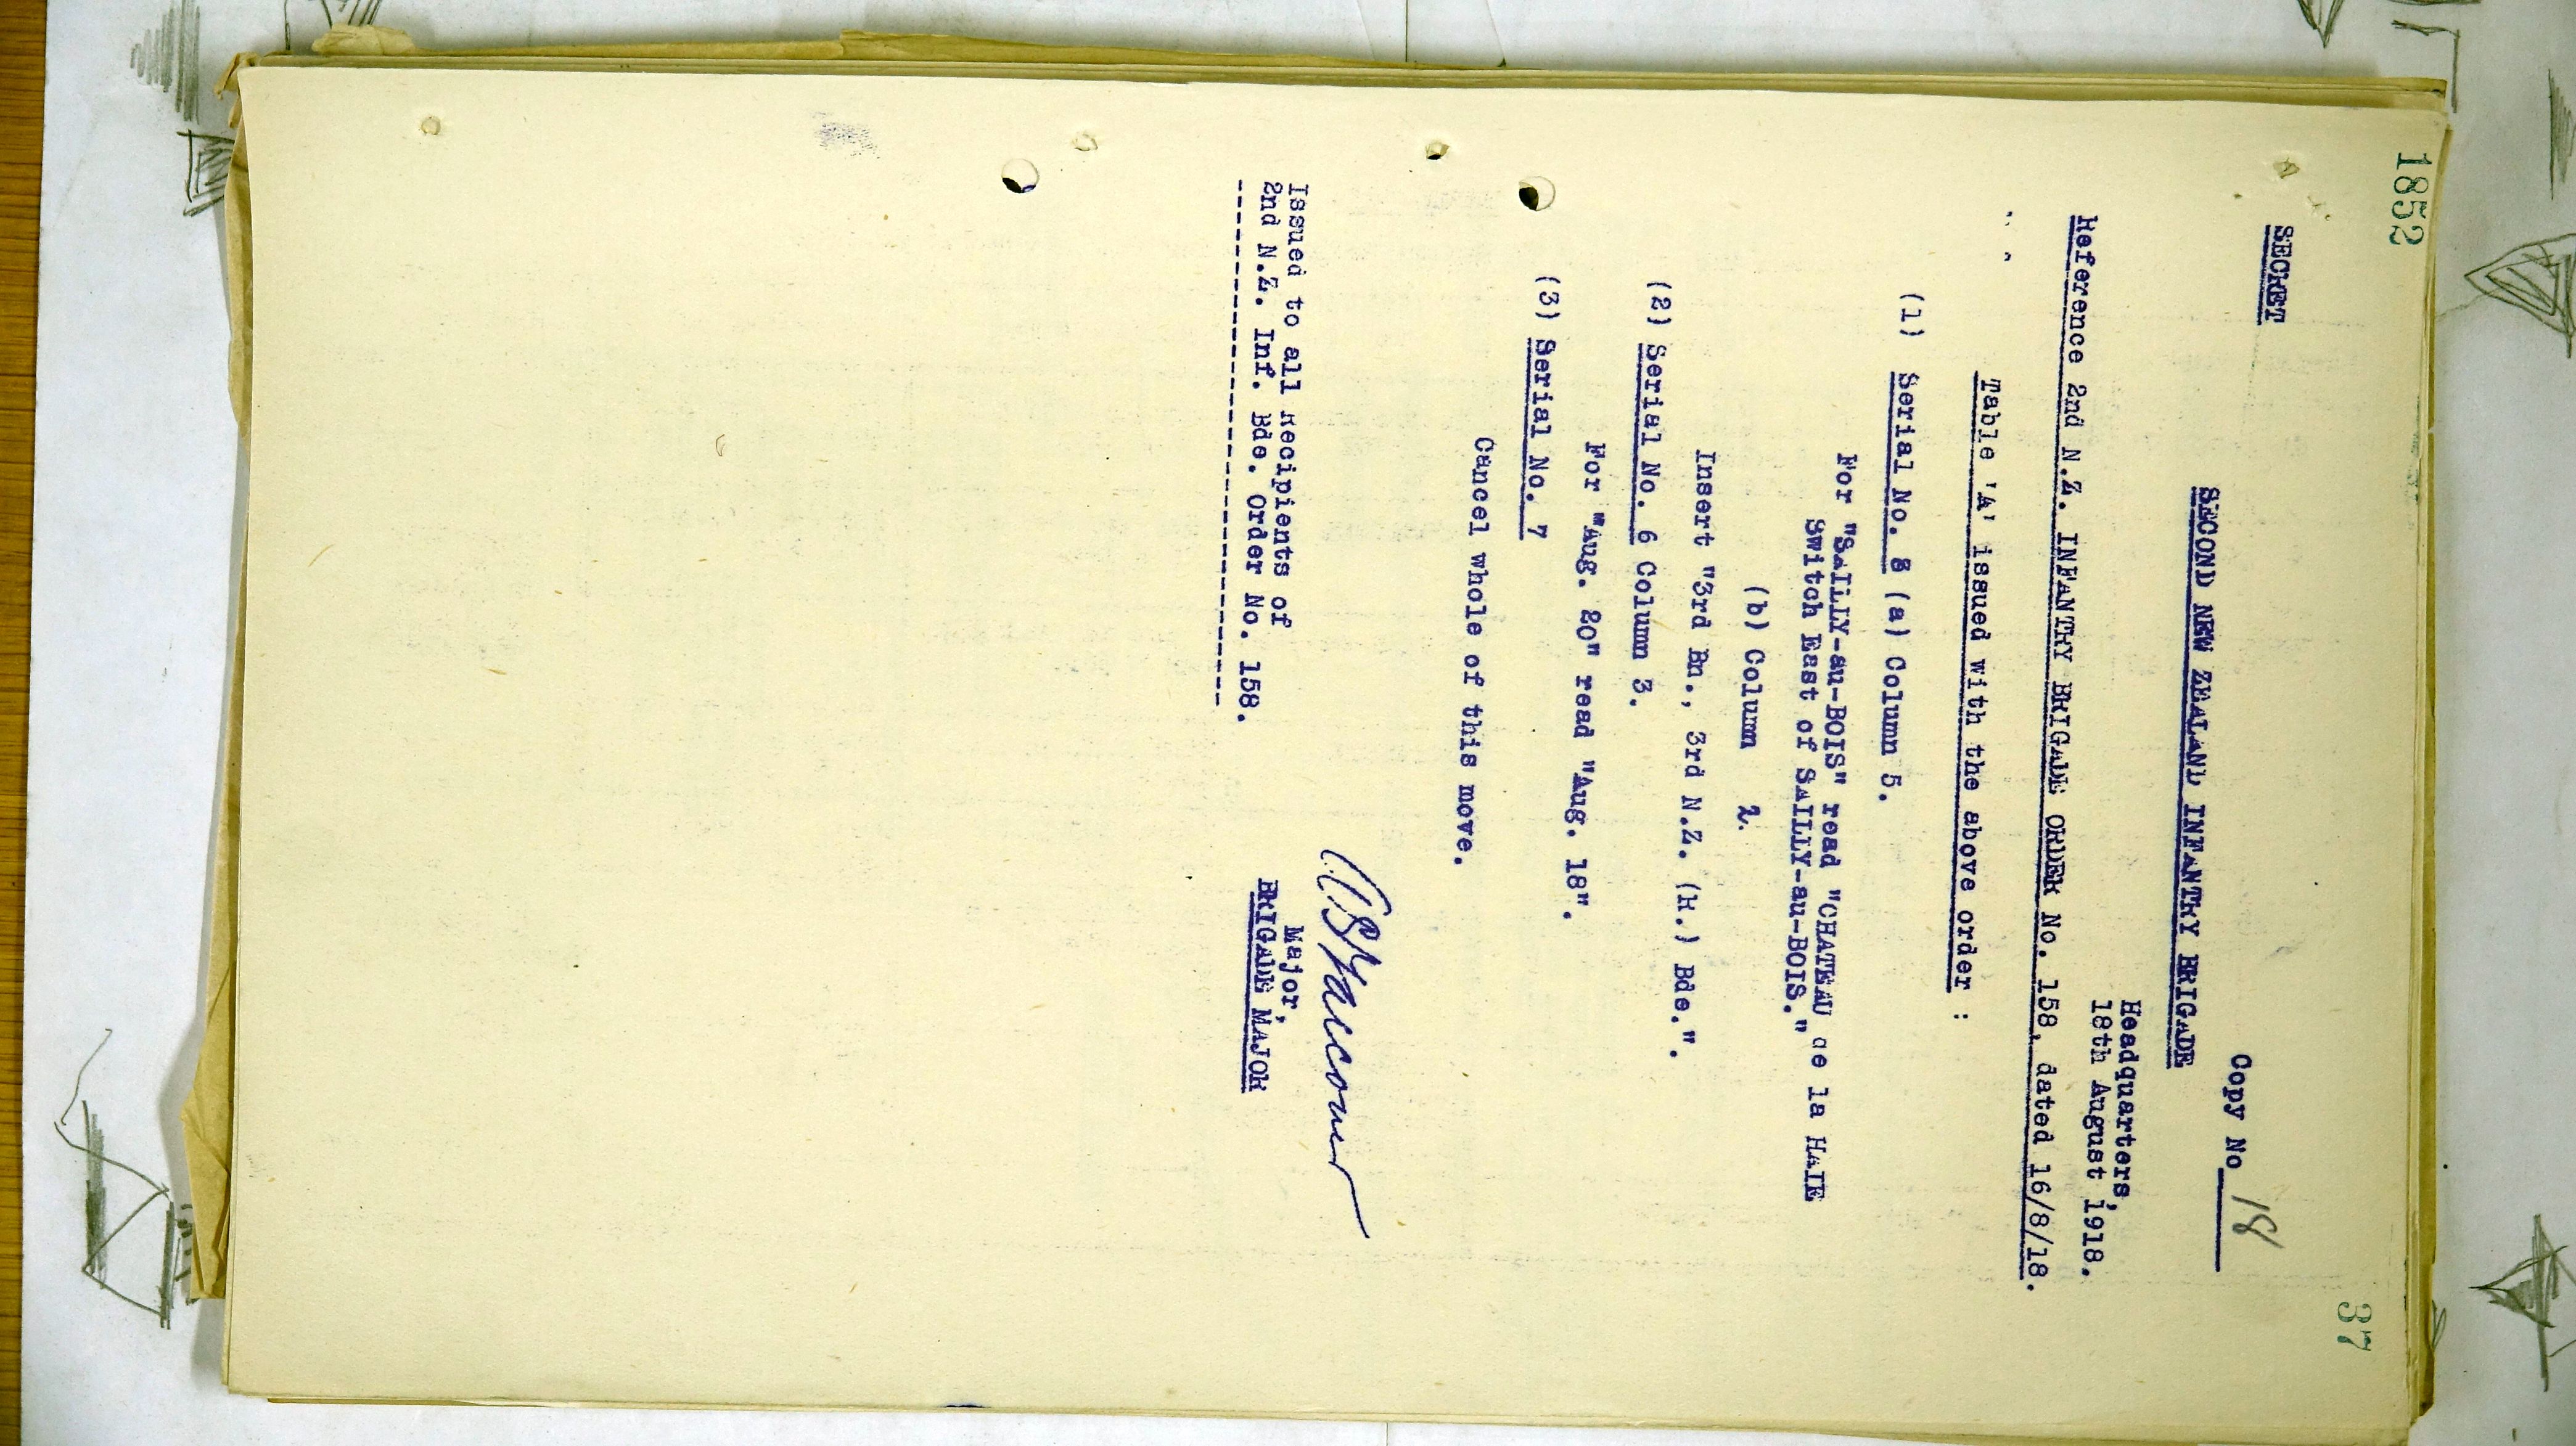 1852
37
SECRET
Copy No 18
SECOND NEW ZEALAND INFANTRY BRIGADE
Headquarters,
18th August 1918.
Reference 2nd N.Z. INFANTRY BRIGADE ORDER No. 158, dated 16/8/18.
Table 'A' issued with the above order :
(1) Serial No. 3 (a) Column 5.
For "SAILLY-au-BOIS" read "CHATEAU de la HAIE
Switch East of SAILLY-au-BOIS."
(b) Column 2.
Insert "3rd Bn., 3rd N.Z. (R.) Bde.".
(2) Serial No. 6 Column 3.
For "Aug. 20" read "Aug. 18".
(3) Serial No. 7
Cancel whole of this move.
Major,
BRIGADE MAJOR
Issued to all Recipients of
2nd N.Z. Inf. Bde. Order No. 158.